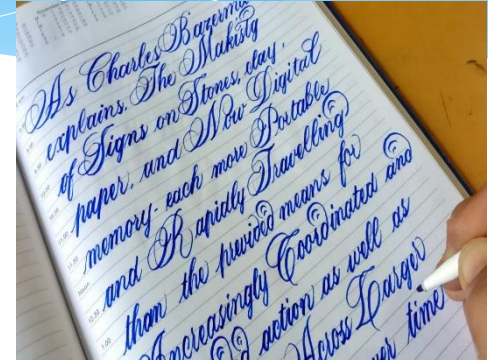 As Charles Bazerm
explains. The Makisty
of Signs on Stones, clay,
paper, and Now Digital
memory- each more Portable
and Rapidly Travelling
than the previded means for
Increasingly Coordinated and
action as well as
Across Larger
time